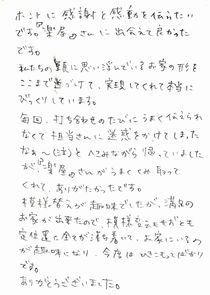 ホントに感謝と感動を伝えたい
です。楽屋さんに出会えて良かった
です。
私たちの頭に思い浮んでいるお家の形を
ここまで近づけて、実現してくれて本当に
びっくりしています。
毎回、打ち合わせのたびにうまく伝えられ
なくて担当さんに迷惑をかけてしまった
なぁ〜(泣)と凹みながら帰っていました
が「楽屋」さんがうまくくみ取って
くれて、ありがたかったです。
模様替えが趣味でしたが、満足の
お家が出来たので、模様替えもせずとも
定位置に全てが落ち着いて、お家にいるの
が趣味になり、今度はひきこもってばかり
です。
ありがとうございました。